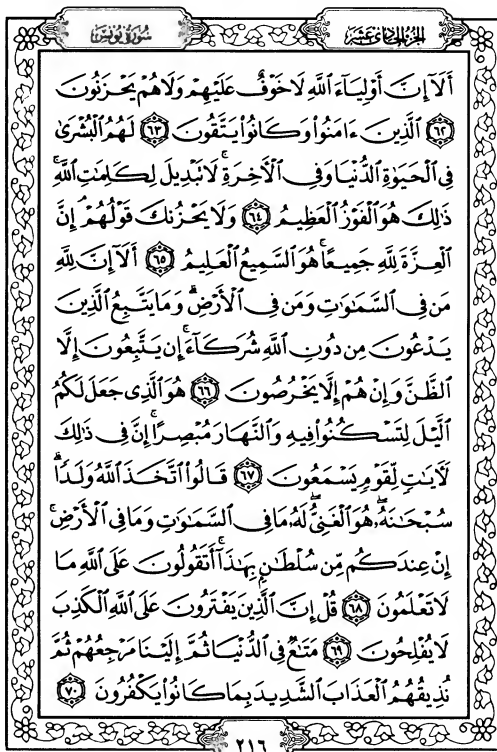 الجزء الحادي عشر
سورة يونس
أَلَآ إِنَّ أَوْلِيَآءَ ٱللَّهِ لَا خَوْفٌ عَلَيْهِمْ وَلَا هُمْ يَحْزَنُونَ
﴿٦٢﴾ ٱلَّذِينَ ءَامَنُوا۟ وَكَانُوا۟ يَتَّقُونَ ﴿٦٣﴾ لَهُمُ ٱلْبُشْرَىٰ
فِى ٱلْحَيَوٰةِ ٱلدُّنْيَا وَفِى ٱلْـَٔاخِرَةِ ۚ لَا تَبْدِيلَ لِكَلِمَٰتِ ٱللَّهِ ۚ
ذَٰلِكَ هُوَ ٱلْفَوْزُ ٱلْعَظِيمُ ﴿٦٤﴾ وَلَا يَحْزُنكَ قَوْلُهُمْ ۘ إِنَّ
ٱلْعِزَّةَ لِلَّهِ جَمِيعًا ۚ هُوَ ٱلسَّمِيعُ ٱلْعَلِيمُ ﴿٦٥﴾ أَلَآ إِنَّ لِلَّهِ
مَن فِى ٱلسَّمَٰوَٰتِ وَمَن فِى ٱلْأَرْضِ ۗ وَمَا يَتَّبِعُ ٱلَّذِينَ
يَدْعُونَ مِن دُونِ ٱللَّهِ شُرَكَآءَ ۚ إِن يَتَّبِعُونَ إِلَّا
ٱلظَّنَّ وَإِنْ هُمْ إِلَّا يَخْرُصُونَ ﴿٦٦﴾ هُوَ ٱلَّذِى جَعَلَ لَكُمُ
ٱلَّيْلَ لِتَسْكُنُوا۟ فِيهِ وَٱلنَّهَارَ مُبْصِرًا ۚ إِنَّ فِى ذَٰلِكَ
لَـَٔايَٰتٍ لِّقَوْمٍ يَسْمَعُونَ ﴿٦٧﴾ قَالُوا۟ ٱتَّخَذَ ٱللَّهُ وَلَدًا ۗ
سُبْحَٰنَهُۥ ۖ هُوَ ٱلْغَنِىُّ ۖ لَهُۥ مَا فِى ٱلسَّمَٰوَٰتِ وَمَا فِى ٱلْأَرْضِ ۚ
إِنْ عِندَكُم مِّن سُلْطَٰنٍۭ بِهَٰذَآ ۚ أَتَقُولُونَ عَلَى ٱللَّهِ مَا
لَا تَعْلَمُونَ ﴿٦٨﴾ قُلْ إِنَّ ٱلَّذِينَ يَفْتَرُونَ عَلَى ٱللَّهِ ٱلْكَذِبَ
لَا يُفْلِحُونَ ﴿٦٩﴾ مَتَٰعٌ فِى ٱلدُّنْيَا ثُمَّ إِلَيْنَا مَرْجِعُهُمْ ثُمَّ
نُذِيقُهُمُ ٱلْعَذَابَ ٱلشَّدِيدَ بِمَا كَانُوا۟ يَكْفُرُونَ ﴿٧٠﴾
٢١٦